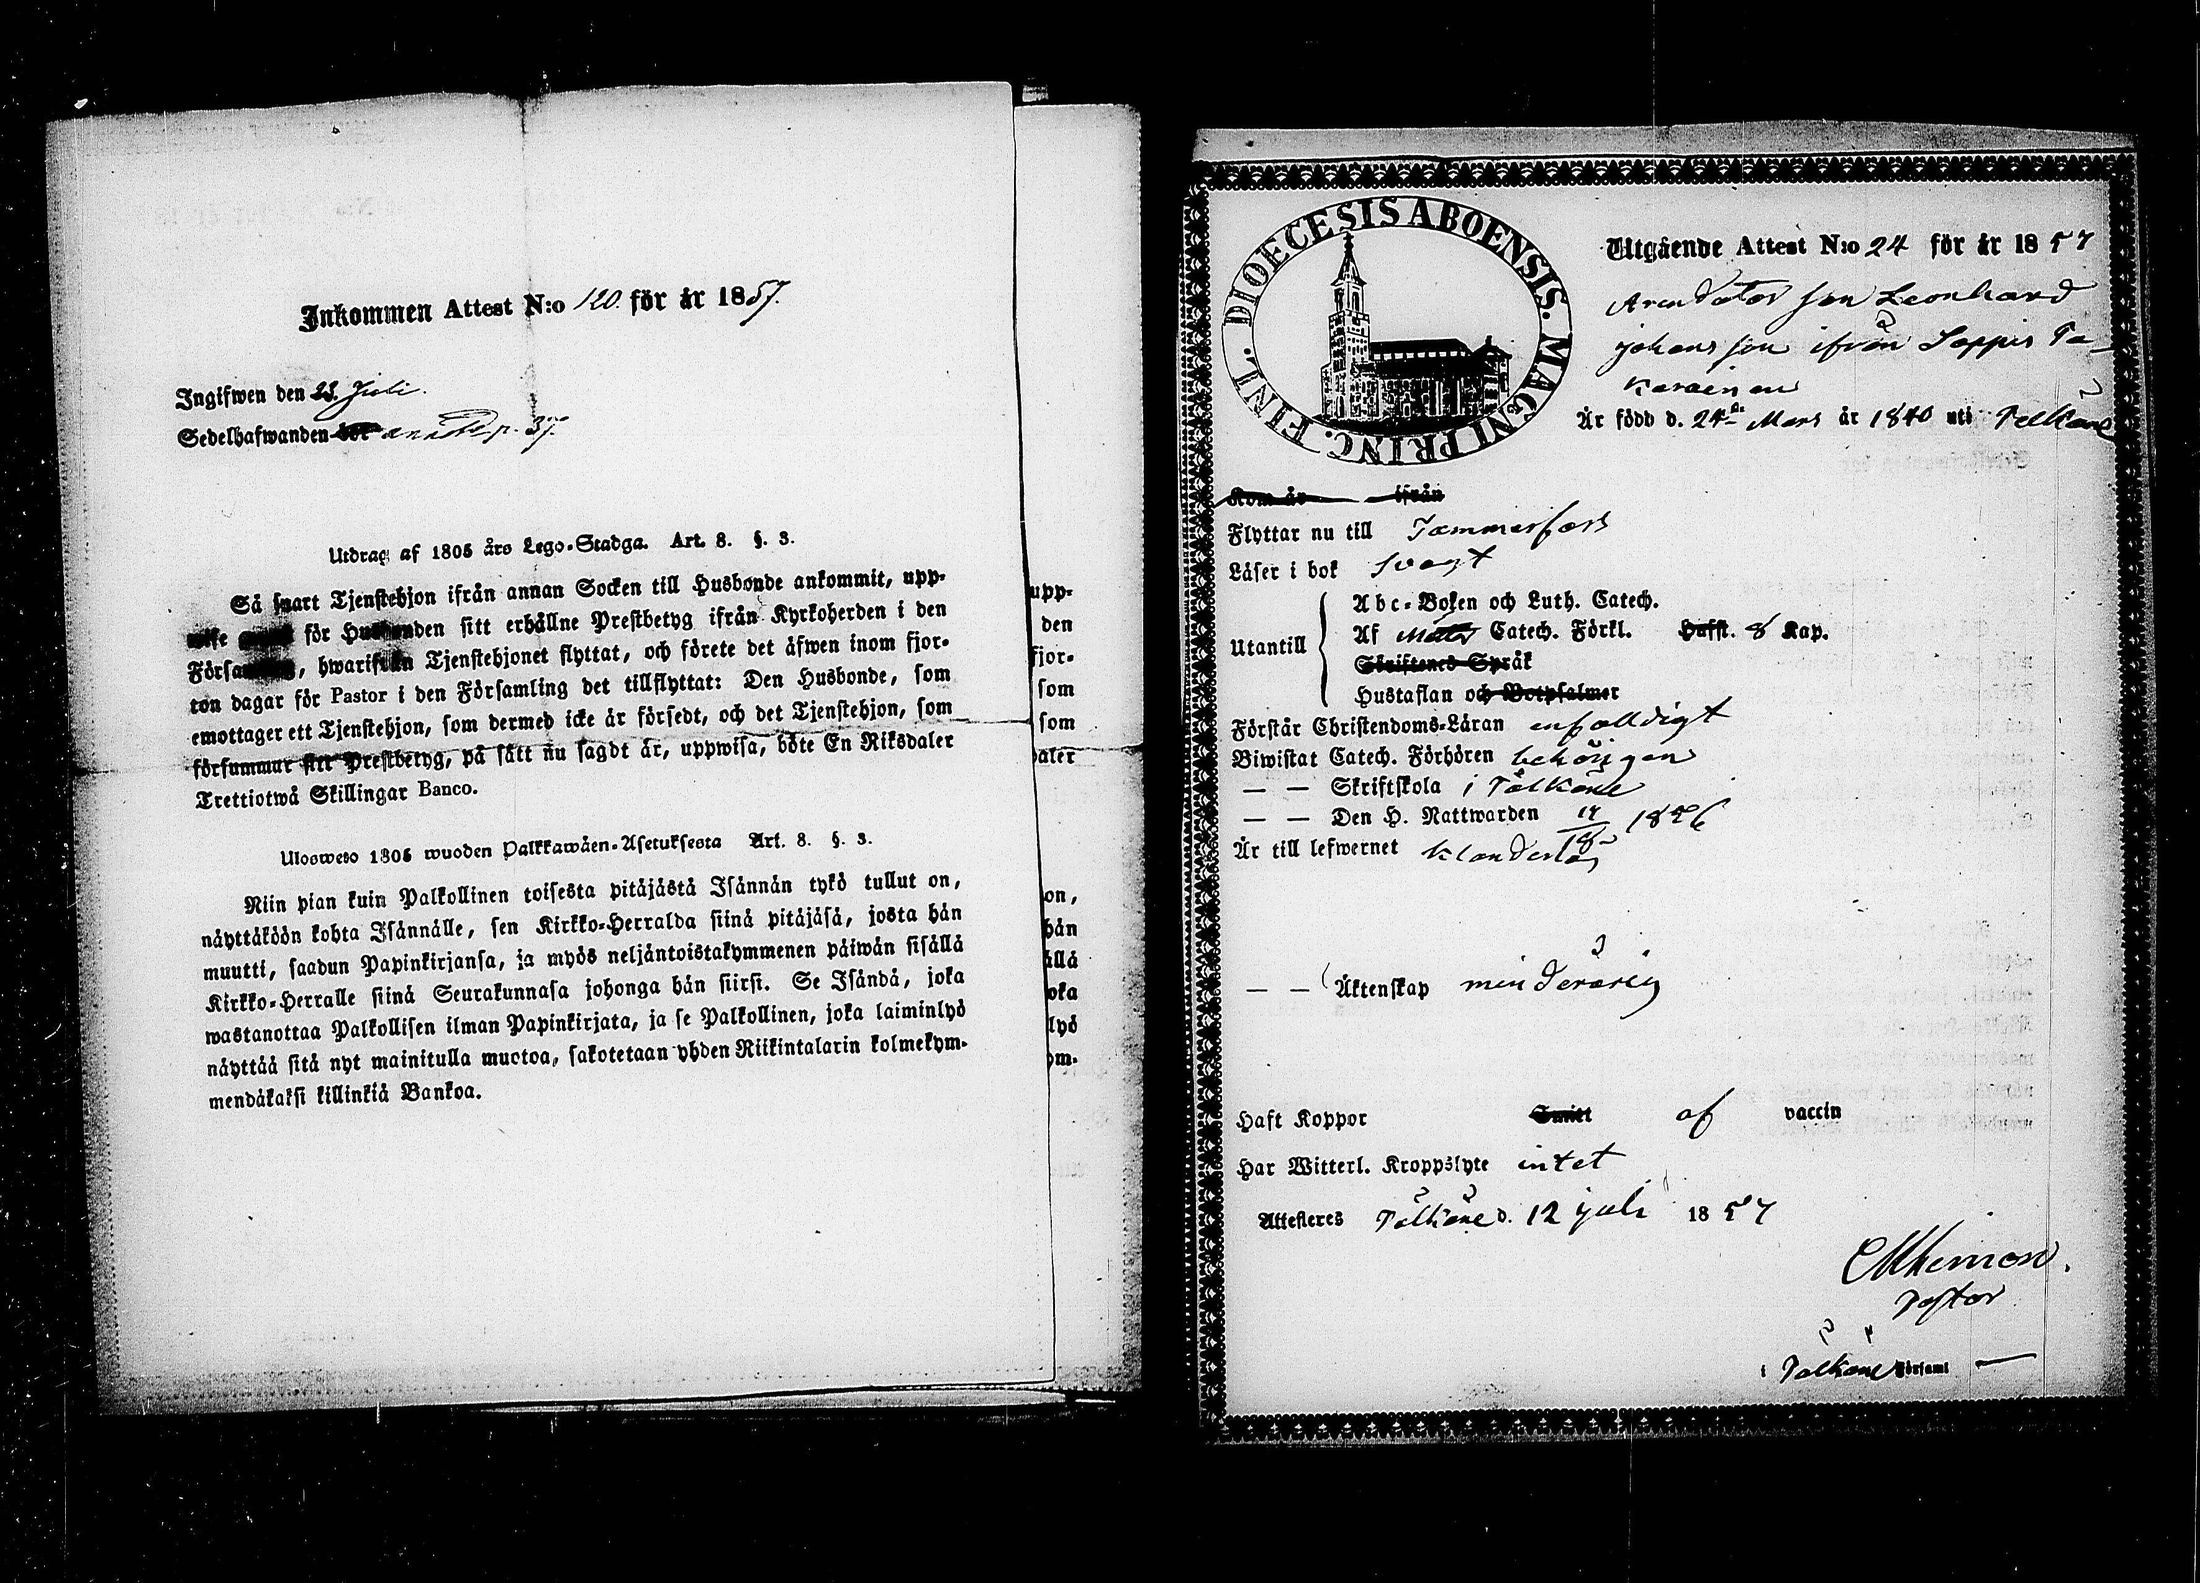 Inkommen Attest N:o 120. för år 1857.
Ingifwen den 23. Juli.
Sedelhafwanden bor p. 37.
Utdrag af 1805 års Lego-Stadga. Art. 8. §. 3.
Så snart Tjenstehjon ifrån annan Socken till Husbonde ankommit, upp-
wise för Husbonden sitt erhållne Prestbetyg ifrån Kyrkoherden i den
Församling, hwarifrån Tjenstehjonet flyttat, och förete det äfwen inom fjor-
ton dagar för Pastor i den Församling det tillflyttat: Den Husbonde, som
emottager ett Tjenstehjon, som dermed icke är försedt, och det Tjenstehjon, som
försummar sitt Prestbetyg, på sätt nu sagdt är, uppwisa, böte En Riksdaler
Trettiotwå Skillingar Banco.
Ulosweto 1805 wuoden Palkkawäen-Asetuksesta Art. 8. §. 3.
Niin pian kuin Palkollinen toisesta pitäjästä Isännän tykö tullut on,
näyttäköön kohta Isännälle, sen Kirkko-Herralda siinä pitäjäsä, josta hän
muutti, saadun Papinkirjansa, ja myös neljäntoistakymmenen päiwän sisällä
Kirkko-Herralle siinä Seurakunnasa johonga hän siirsi. Se Isändä, joka
wastanottaa Palkollisen ilman Papinkirjata, ja se Palkollinen, joka laiminlyö
näyttää sitä nyt mainitulla muotoa, sakotetaan yhden Riikintalarin kolmekym-
mendäkaksi killinkiä Bankoa.
upp-
den
fjor-
som
som
daler
on,
hän
ällä
oka
lyö
ym-
DIOECESIS ABOENSIS. MAGNI PRINC. FINL.
Utgående Attest N:o 24 för år 1857
Arendators son Leonhard
Johansson ifrån Soppis Pa-
karainen
Är född d. 24de Mars år 1840 uti Pelkäne
Kom år ifrån
Flyttar nu till Tammerfors
Läser i bok svagt
Utantill
Abc-Boken och Luth. Catech.
Af Catech. Förkl. Hufst. 8 Kap.
Skriftenes Språk
Hustaflan och Botpsalmer
Förstår Christendoms-Läran enfalldigt
Biwistat Catech. Förhören behörigen
— — Skriftskola i Pälkäne
— — Den H. Nattwarden 1856
Är till lefwernet klanderlös
— — Äktenskap minderårig
Haft Koppor Smitt af vaccin
Har Witterl. Kroppslyte intet
Attesteres Pälkäne d. 12 juli 1857
Pastor
i Pälkäne Församl